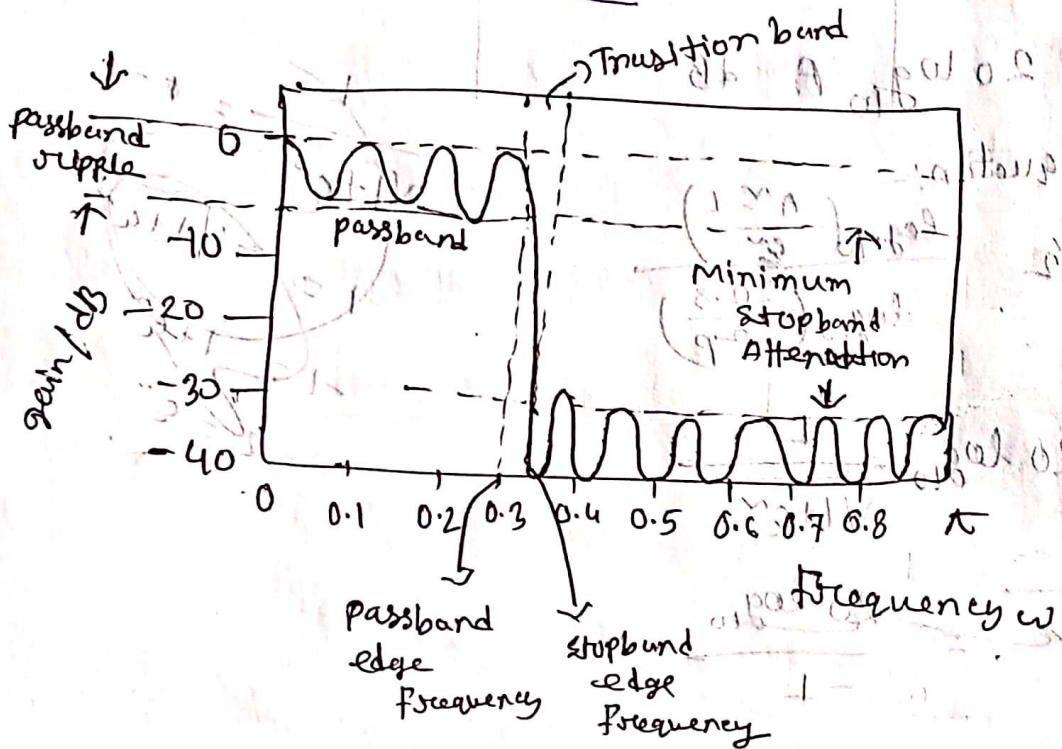 Trusition band
passband
ripple
0
-10
-20
-30
-40
gain/dB
passband
Minimum
Stopband
Attenation
0
0.1
0.2
0.3
0.4
0.5
0.6
0.7
0.8
π
Frequency ω
passband
edge
frequency
stopband
edge
frequency
20 log A dB